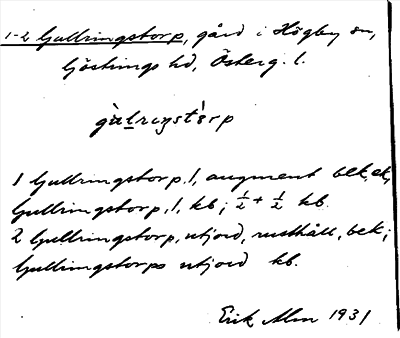 1-2 Gullringstorp, gård i Högby sn,
Göstrings hd, Österg. l.
gùlriŋstòrp
1 Gullringstorp, 1, augment bek, ek,
Gullringstorp, 1, kb; ½ + ½ kb.
2 Gullringstorp, utjord, rusthåll, bek;
Gullringstorps utjord kb.
Erik Alm 1931